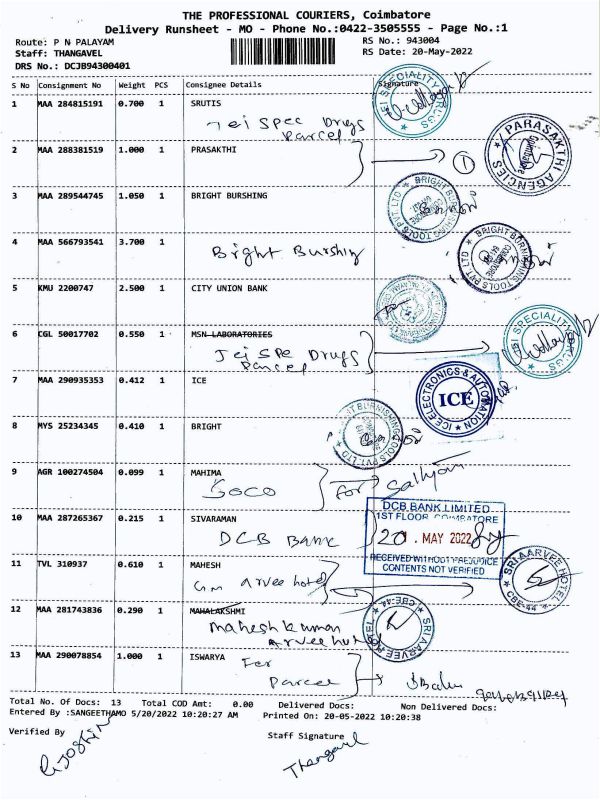 THE PROFESSIONAL COURIERS, Coimbatore
Delivery Runsheet - MO - Phone No.:0422-3505555 - Page No.:1
Route: P N PALAYAM
RS No.: 943004
Staff: THANGAVEL
RS Date: 20-May-2022
DRS No.: DCJB94300401
S No Consignment No Weight PCS Consignee Details Signature
1 MAA 284815191 0.700 1 SRUTIS
Jei Spec Drugs
Parcel
JEI SPECIALITY DRUGS
2 MAA 288381519 1.000 1 PRASAKTHI
1
PARASAKTHI AGENCIES
Coimbatore
3 MAA 289544745 1.050 1 BRIGHT BURSHING
BRIGHT BURNISHING TOOLS PVT LTD
4 MAA 566793541 3.700 1
Bright Burshing
BRIGHT BURNISHING TOOLS PVT LTD
5 KMU 2200747 2.500 1 CITY UNION BANK
6 CGL 50017702 0.550 1 MSN LABORATORIES
Jei Spe Drugs
Parcel
JEI SPECIALITY DRUGS
7 MAA 290935353 0.412 1 ICE
ICE ELECTRONICS & AUTOMATION
ICE
8 MYS 25234345 0.410 1 BRIGHT
BRIGHT BURNISHING TOOLS PVT LTD
9 AGR 100274504 0.099 1 MAHIMA
For
10 MAA 287265367 0.215 1 SIVARAMAN
DCB BANK
DCB BANK LIMITED
1ST FLOOR, COIMBATORE
20 . MAY 2022
RECEIVED WITHOUT PREJUDICE
CONTENTS NOT VERIFIED
11 TVL 310937 0.610 1 MAHESH
Gm Arvee hotel
SRI AARVEE HOTEL
CBE-44
12 MAA 281743836 0.290 1 MAHALAKSHMI
Mahesh kumar
Arvee hotel
SRI AARVEE HOTEL
CBE-44
13 MAA 290078854 1.000 1 ISWARYA
For
Parcel
Total No. Of Docs: 13 Total COD Amt: 0.00 Delivered Docs: Non Delivered Docs:
Entered By :SANGEETHAMO 5/20/2022 10:20:27 AM Printed On: 20-05-2022 10:20:38
Verified By
Staff Signature
Thangavel